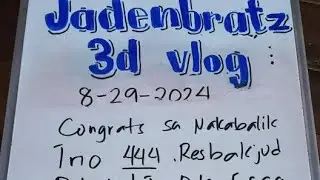 Jadenbratz
3d vlog :
8-29-2024
Congrats sa Nakabalik
Ino 444 .Resbakjud